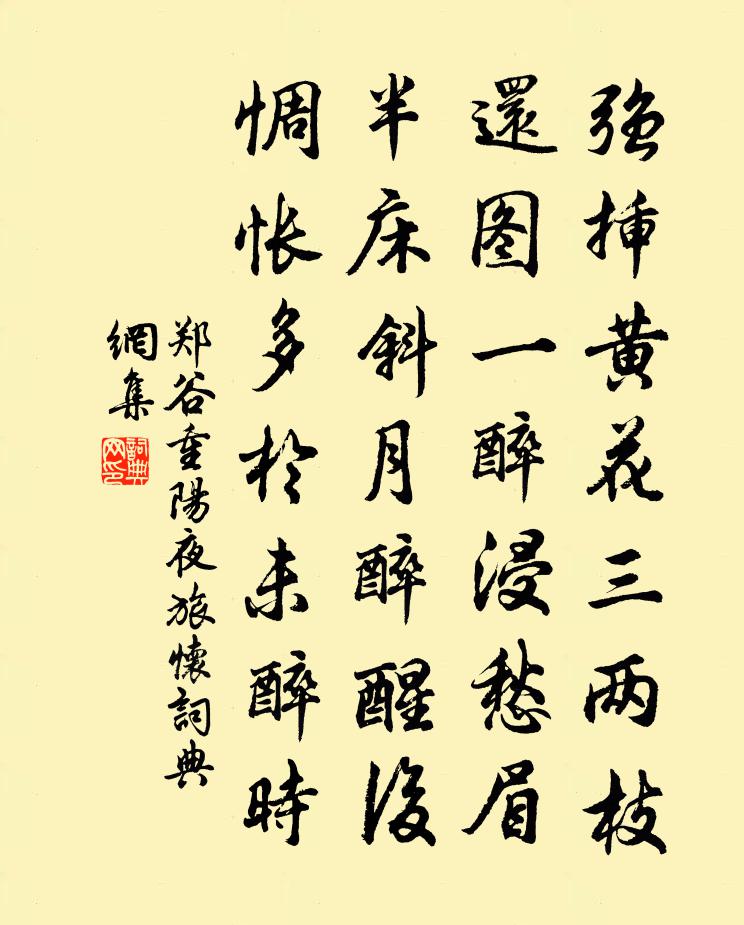 强插黄花三两枝
還图一醉浸愁眉
半床斜月醉醒後
惆怅多於未醉時
郑谷重陽夜旅懷詞典
網集
詞典
网印